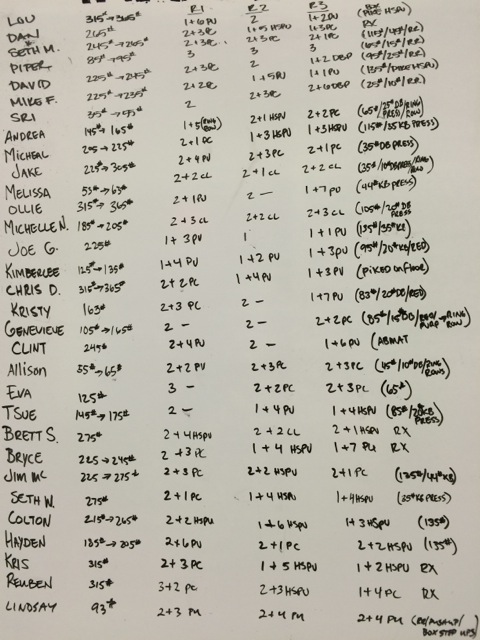 R1 R2 R3
LOU 315# → 365# 1+6PU 2 1+2PU HSPU
DAN 265# 2+3PC 1+5 HSPU 2+3PC RX
SETH M. 245# → 265# 2+3PC 2+3PC 2+1PC
PIPER 85# → 95# 3 3 3
DAVID 225# → 245# 2+3PC 2 1+2 DBP
MIKE F. 225# → 235# 2+2PC 1+5PU 1+1PU
SRI 35# → 55# 2 2+3PC 2+6DBP
ANDREA 145# → 165# 1+5 (RING ROW) 2+1 HSPU 2+2PC (65#/25#DB/RING
MICHEAL 205 → 225# 2+1PC 1+3 HSPU 1+3HSPU (115#/35KB PRESS)
JAKE 225# → 305# 2+4PU 2+3PC 2+1PC (35#DB PRESS)
MELISSA 53# → 63# 2+2CL 2+1CL 2+2CL
OLLIE 315# → 365# 2+1PU 2 — 1+7PU (44#KB PRESS)
MICHELLE N. 185# → 205# 2+3CL 2+2CL 2+3CL (105#/20#DB PRESS)
JOE G. 225# 1+3PU 1 1+1PU (135#/35#KB)
KIMBERLEE 125# → 135# 1+4PU 1+2PU 1+3PU (95#/20#KB/RED)
CHRIS D. 315# → 365# 2+2PC 1+4PU 1+3PU (PIKED ON FLOOR)
KRISTY 163# 2+3PC 2 — 1+7PU (83#/20#DB/RED)
GENEVIEVE 105# → 165# 2 — 2 — 2+2PC (85#/15#DB/ PURP → RING ROW)
CLINT 245# 2+4PU 2 — 1+6PU (ABMAT
Allison 55# → 65# 2+2PU 2+3PC 2+3PC (45#/10#DB/RING ROWS)
EVA 125# 3 — 2+2PC 2+3PC (65#)
TSUE 145# → 175# 2 — 1+4PU 1+4HSPU (85#/20#KB PRESS)
BRETT S. 275# 2+4HSPU 2+2CL 2+1HSPU RX
BRYCE 225 → 245# 2+3PC 1+4 HSPU 1+7PU RX
JIM MC 225 → 275# 2+3PC 2+2HSPU 2+1PC (135#/44#KB)
SETH W. 275# 2+1PC 1+4HSPU 1+4HSPU (35#KB PRESS)
COLTON 215# → 265# 2+2HSPU 1+6HSPU 1+3HSPU (135#)
HAYDEN 185# → 205# 2+6PU 2+1PC 2+2HSPU (135#)
KRIS 315# 2+3PC 1+5 HSPU 1+2HSPU RX
REUBEN 315# 3+2PC 2+3HSPU 1+4PC RX
LINDSAY 93# 2+3PU 2+4PU 2+4PU BOX STEP UPS)